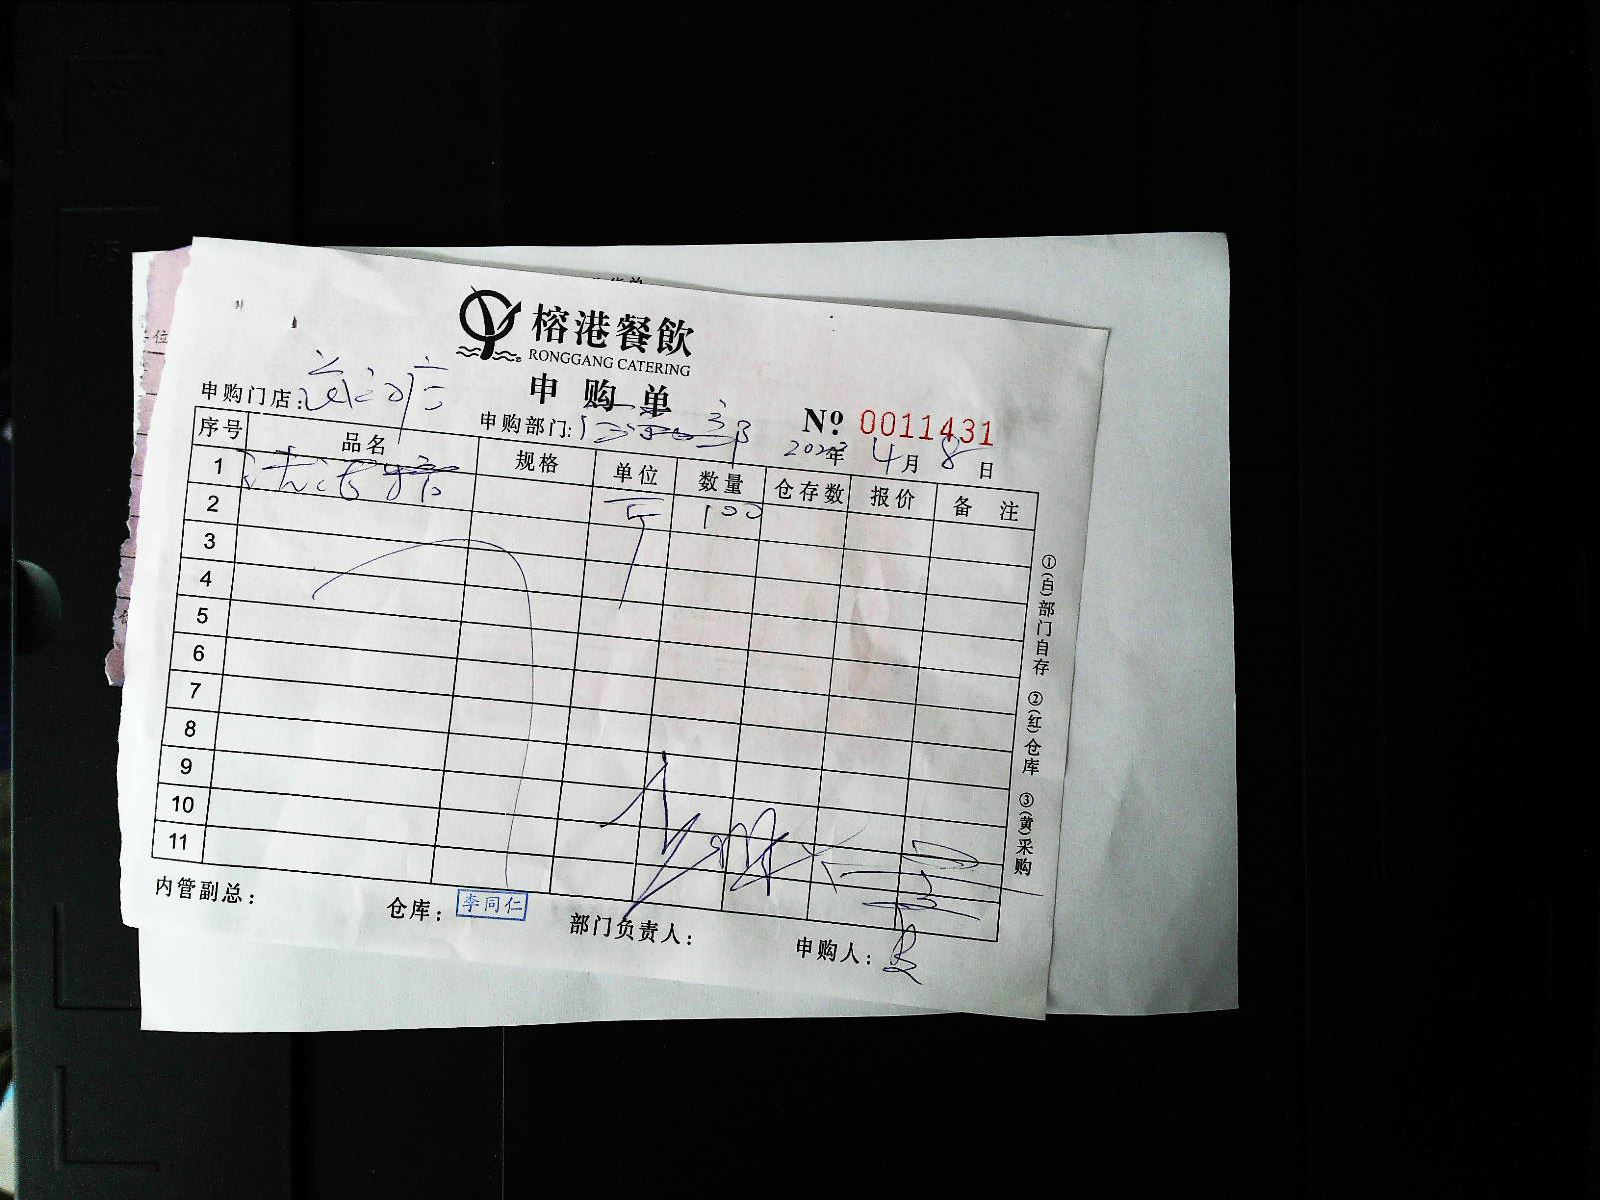 榕港餐飲
RONGGANG CATERING
申购单
申购门店:
申购部门: 部
№ 0011431
2023年 4月 8日
序号 品名 规格 单位 数量 仓存数 报价 备注
1 100
2
3
4
5
6
7
8
9
10
11
①(白)部门自存 ②(红)仓库 ③(黄)采购
内管副总:
仓库: 李同仁
部门负责人:
申购人:
位